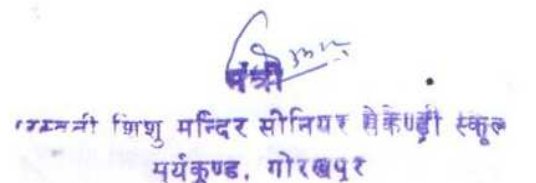 मंत्री
शिशु मन्दिर सीनियर सेकेण्ड्री स्कूल
सूर्यकुण्ड, गोरखपुर